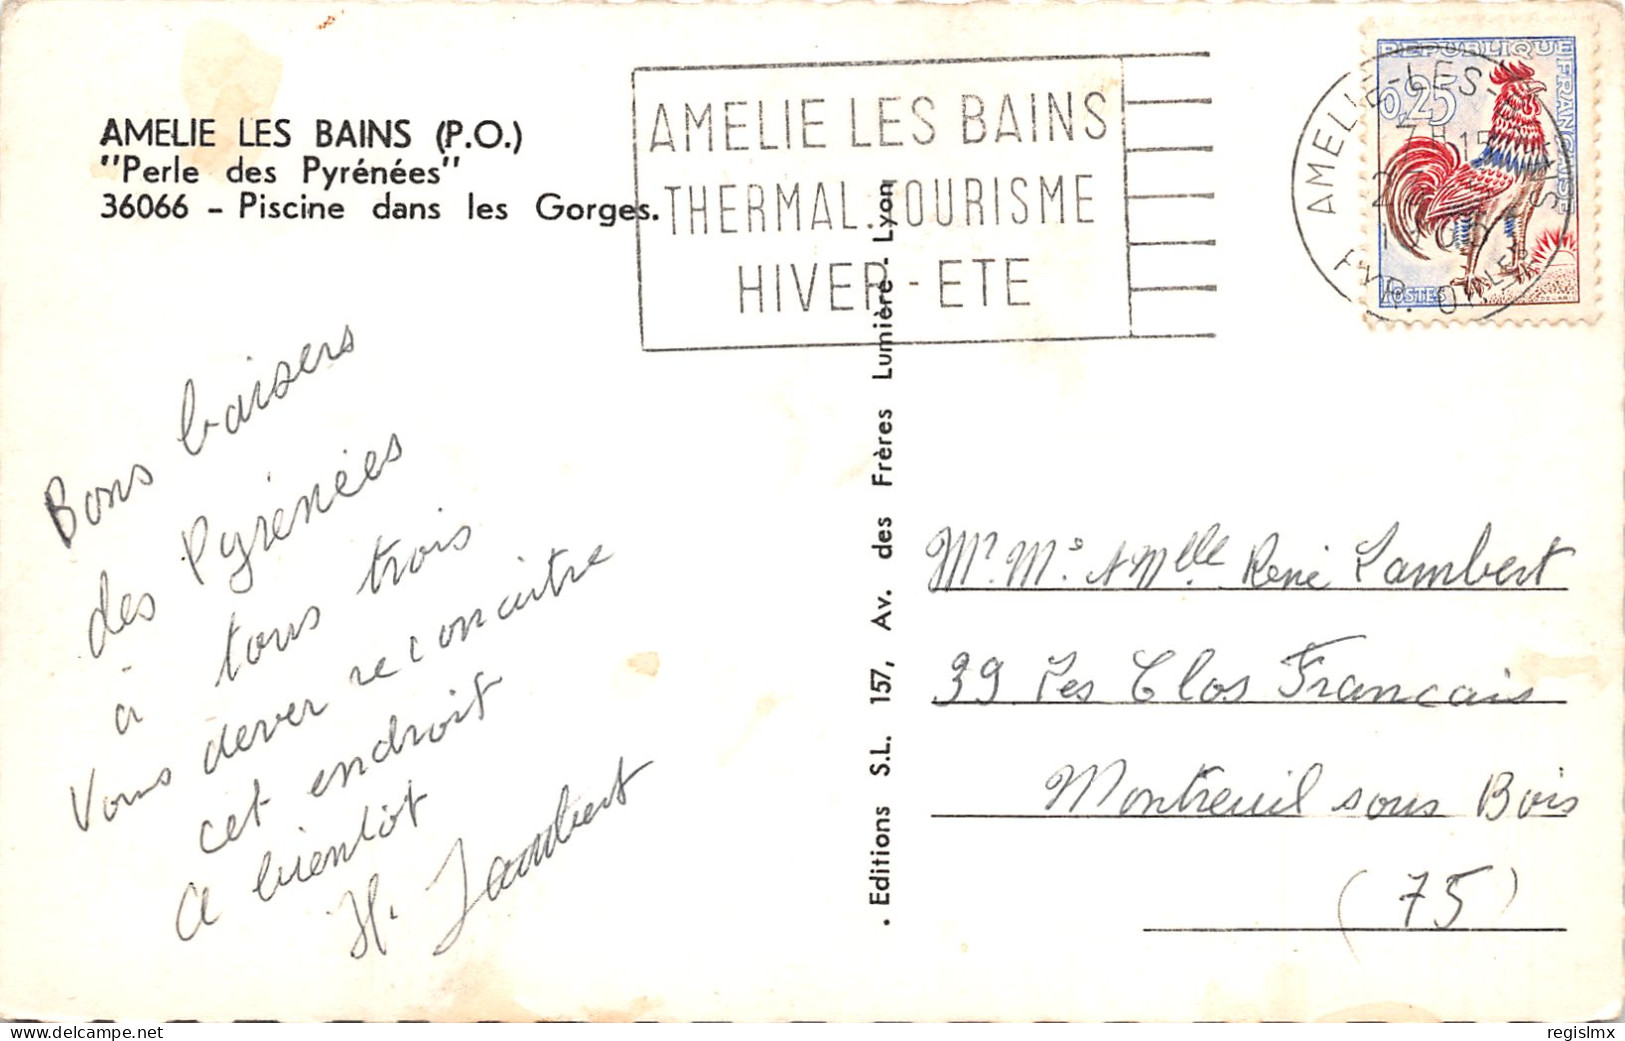 AMELIE LES BAINS (P.O.)
"Perle des Pyrénées"
36066 - Piscine dans les Gorges.
AMELIE LES BAINS
THERMAL. TOURISME
HIVER - ETE
AMELIE-LES-BAINS
7H15
PYR. O
REPUBLIQUE FRANÇAISE
0,25
POSTES
Bons baisers
des Pyrénées
à tous trois
Vous dever reconaitre
cet endroit
A bientôt
H. Lambert
. Editions S.L. 157, Av. des Frères Lumière - Lyon
Mr. Me & Mlle René Lambert
39 Les Clos Francais
Montreuil sous Bois
(75)
regislmx